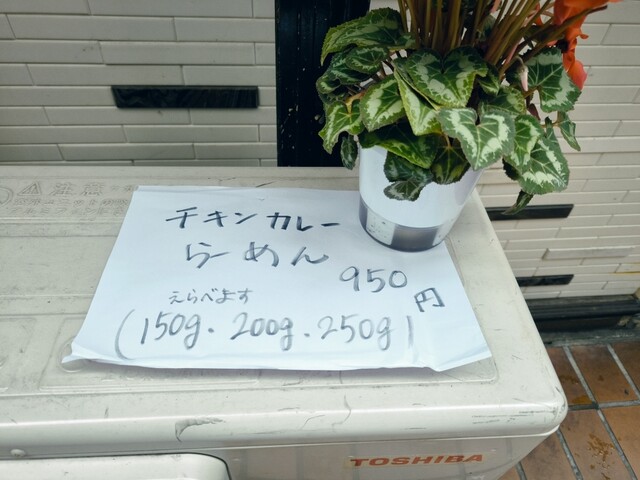 ⚠注意
チキンカレー
らーめん
950円
えらべます
(150g・200g・250g)
TOSHIBA